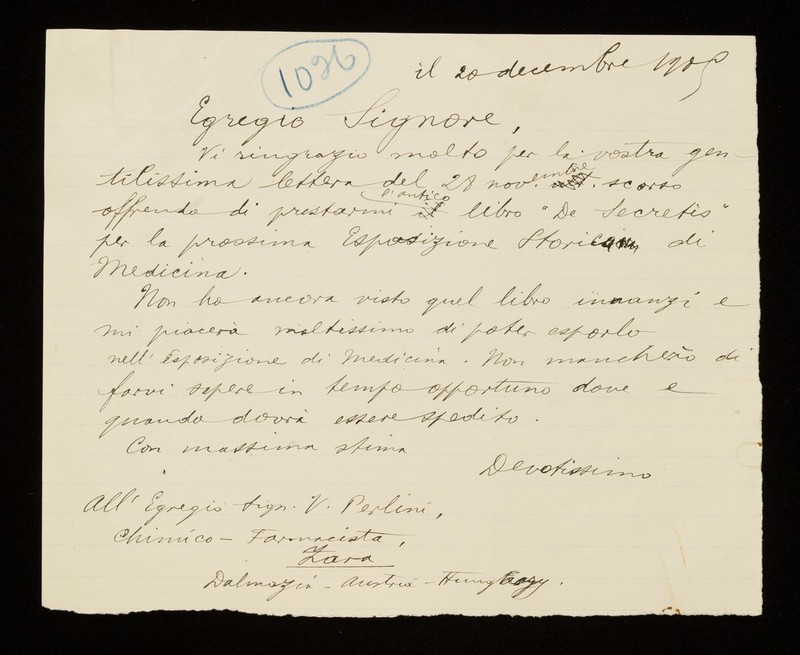 1026
il 20 decembre 1905
Egregio Signore,
Vi ringrazio molto per la vostra gen-
tilissima lettera del 28 novembre scorso
offrendo di prestarmi l'antico libro "De Secretis"
per la prossima Esposizione Storica di
Medicina.
Non ho ancora visto quel libro innanzi e
mi piacerà moltissimo di poter esporlo
nell' Esposizione di Medicina. Non mancherò di
farvi sapere in tempo opportuno dove e
quando dovrà essere spedito.
Con massima stima
Devotissimo
All' Egregio Sign. V. Perlini,
Chimico - Farmacista,
Zara
Dalmazia - Austria - Hungary.